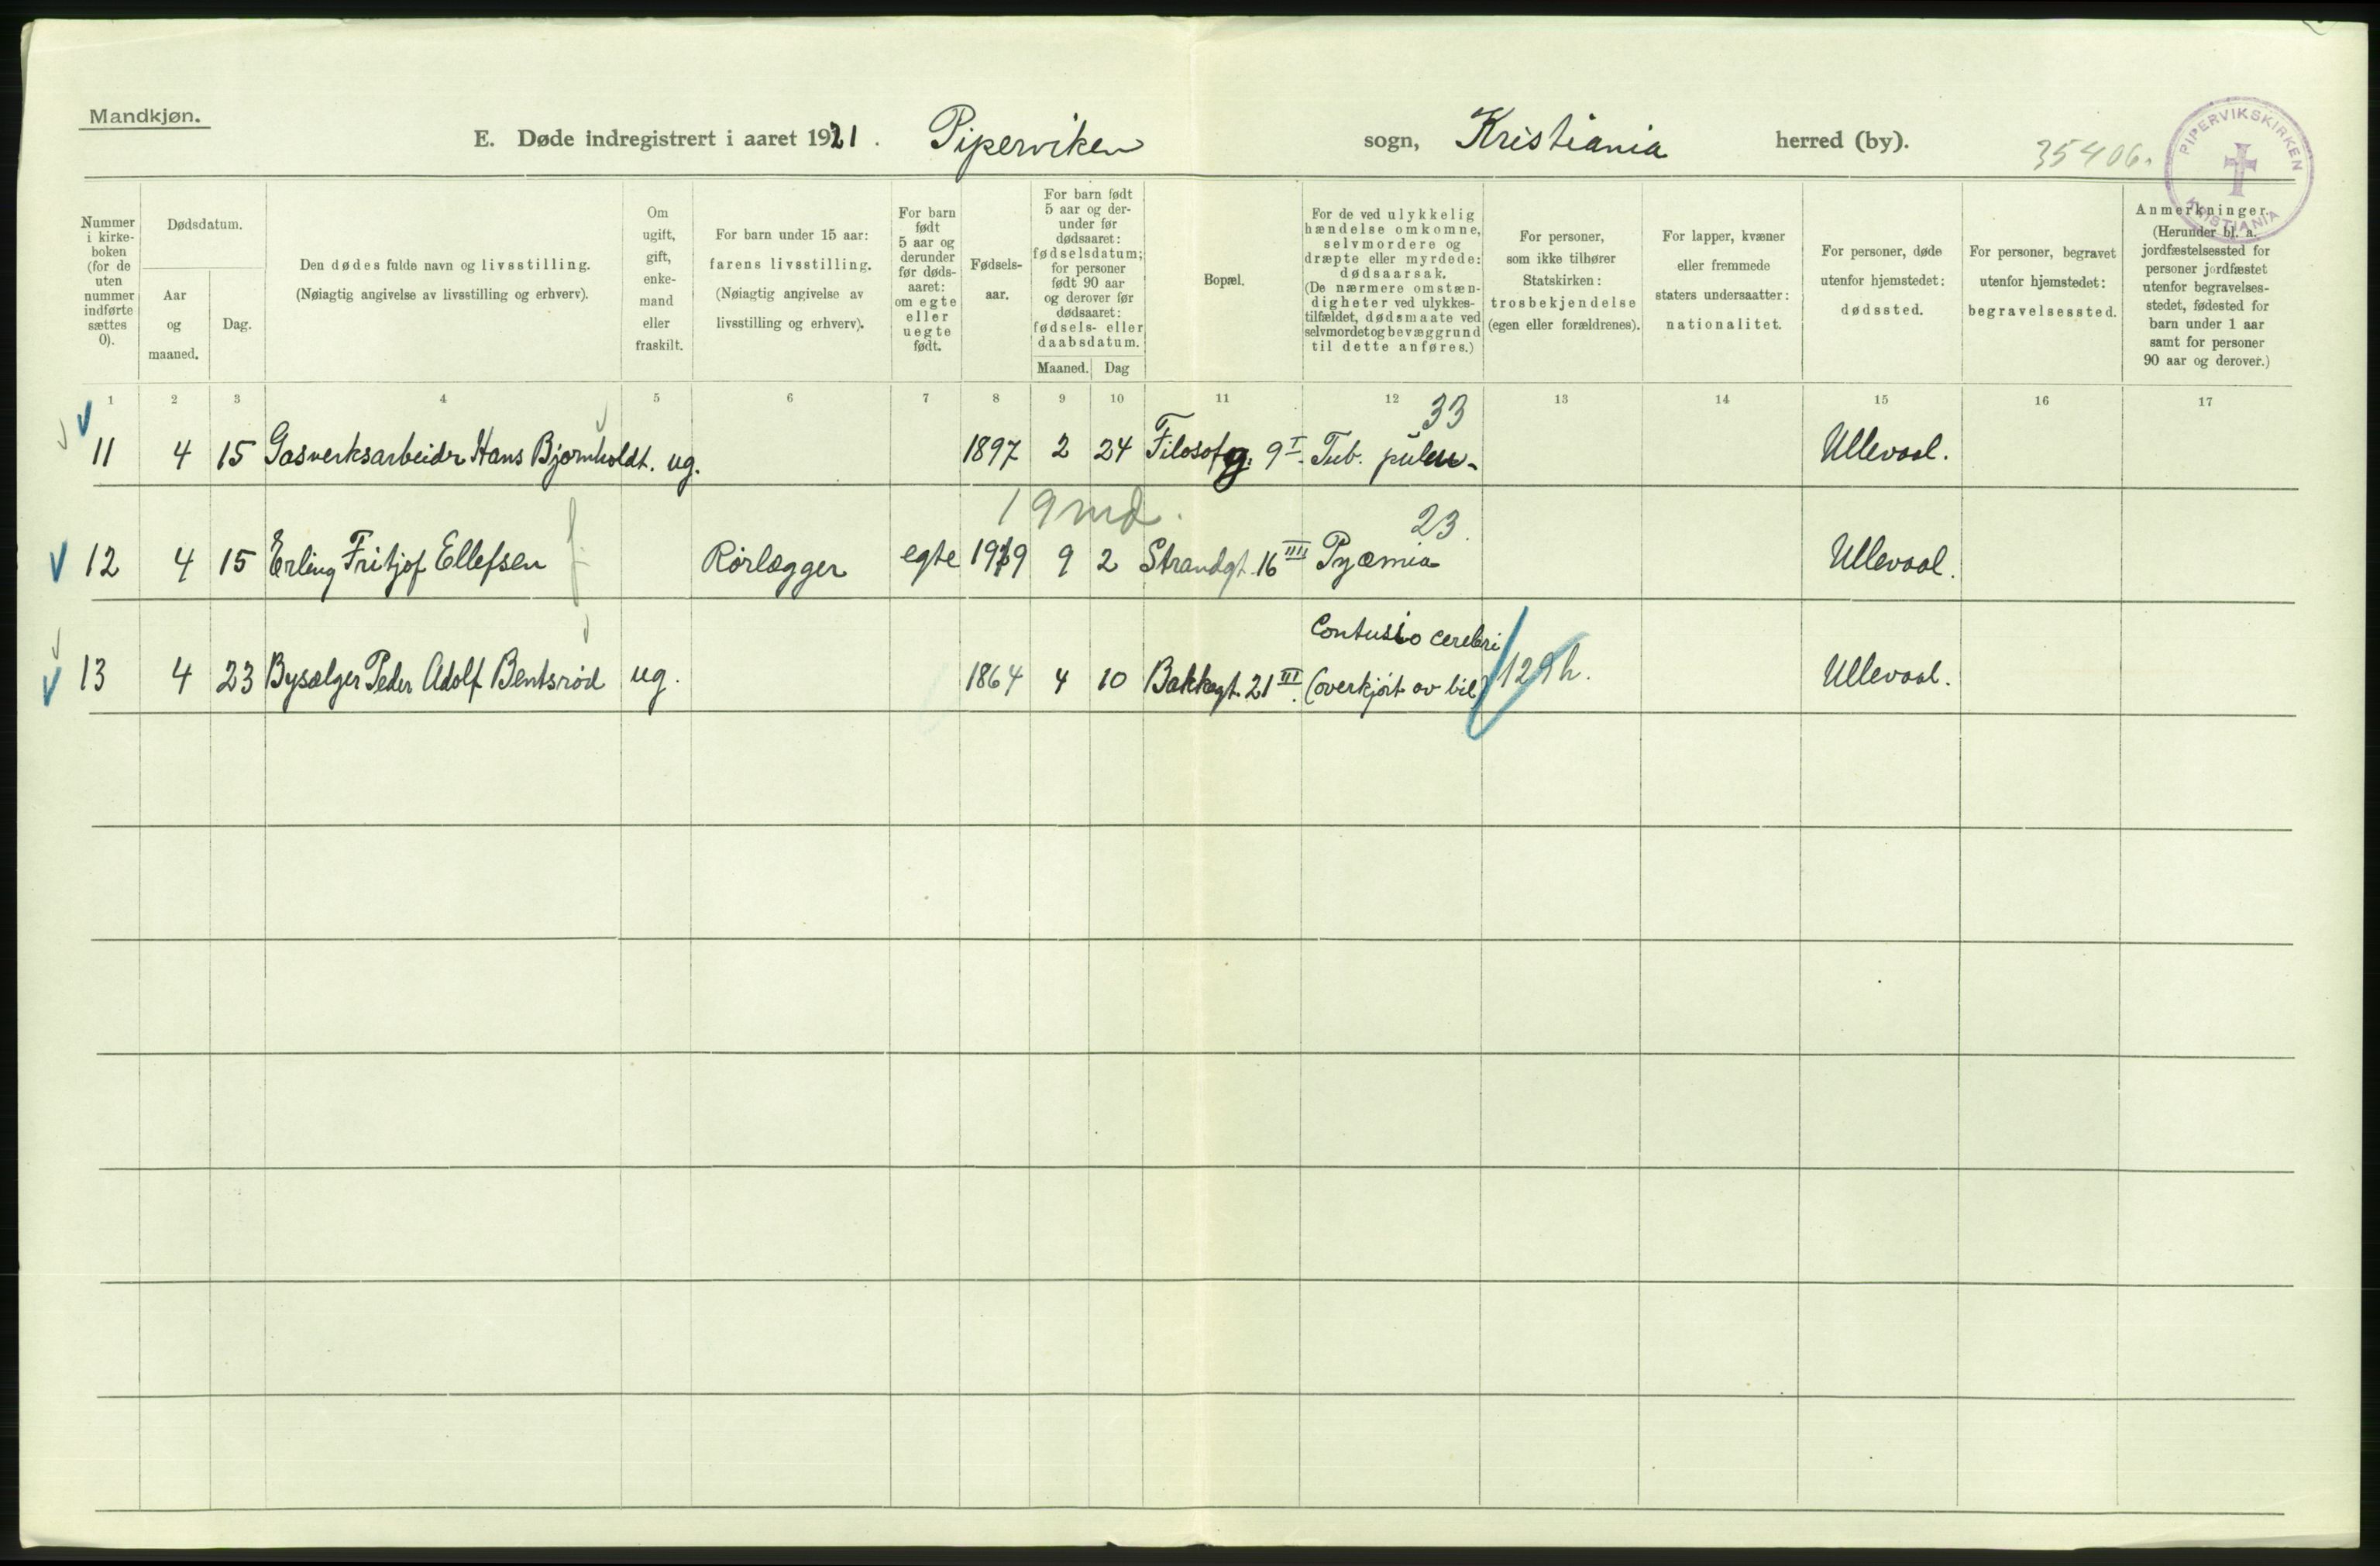 Mandkjøn.
E. Døde indregistrert i aaret 1921. Piperviken sogn, Kristiania herred (by).
35406.
PIPERVIKSKIRKEN KRISTIANIA
Nummer i kirke-boken (for de uten nummer indførte sættes 0).
Dødsdatum.
Aar og maaned.
Dag.
Den dødes fulde navn og livsstilling.
(Nøiagtig angivelse av livsstilling og erhverv).
Om ugift, gift, enke-mand eller fraskilt.
For barn under 15 aar: farens livsstilling.
(Nøiagtig angivelse av livsstilling og erhverv).
For barn født 5 aar og derunder før døds-aaret: om egte eller uegte født.
Fødsels-aar.
For barn født 5 aar og der-under før dødsaaret: fødselsdatum; for personer født 90 aar og derover før dødsaaret: fødsels- eller daabsdatum.
Maaned. Dag
Bopæl.
For de ved ulykkelig hændelse omkomne, selvmordere og dræpte eller myrdede: dødsaarsak.
(De nærmere omstæn-digheter ved ulykkes-tilfældet, dødsmaate ved selvmordet og bevæggrund til dette anføres.)
For personer, som ikke tilhører Statskirken: trosbekjendelse (egen eller forældrenes).
For lapper, kvæner eller fremmede staters undersaatter: nationalitet.
For personer, døde utenfor hjemstedet: dødssted.
For personer, begravet utenfor hjemstedet: begravelsessted.
Anmerkninger.
(Herunder bl. a. jordfæstelsessted for personer jordfæstet utenfor begravelses-stedet, fødested for barn under 1 aar samt for personer 90 aar og derover.)
1 2 3 4 5 6 7 8 9 10 11 12 13 14 15 16 17
33
11 4 15 Gasverksarbeidr Hans Bjørnholdt. ug. 1897 2 24 Filosofg. 9 I. Tub. pulm. Ullevaal.
19 md. 23.
12 4 15 Erling Fritjof Ellefsen f. Rørlægger egte 1919 9 2 Strandgt. 16 IIII Pyæmia Ullevaal.
Contusio cerebri
13 4 23 Bysælger Peder Adolf Bentsrød ug. 1864 4 10 Bakkegt. 21 III. (overkjørt av bil) 129 h. Ullevaal.